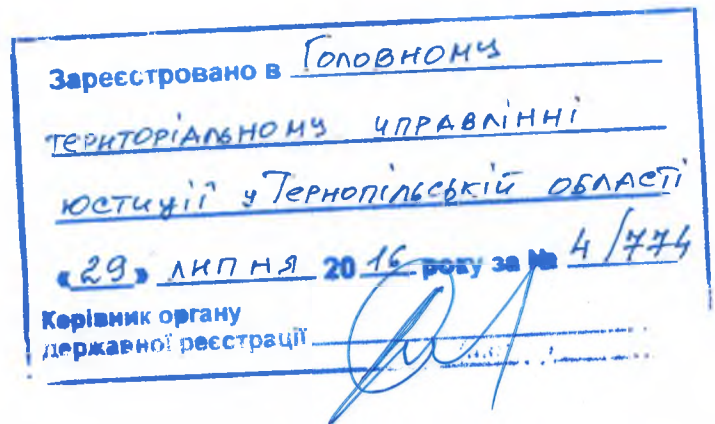 Зареєстровано в Головному
територіальному управлінні
юстиції у Тернопільській області
«29» липня 2016 року за № 4/774
Керівник органу
державної реєстрації